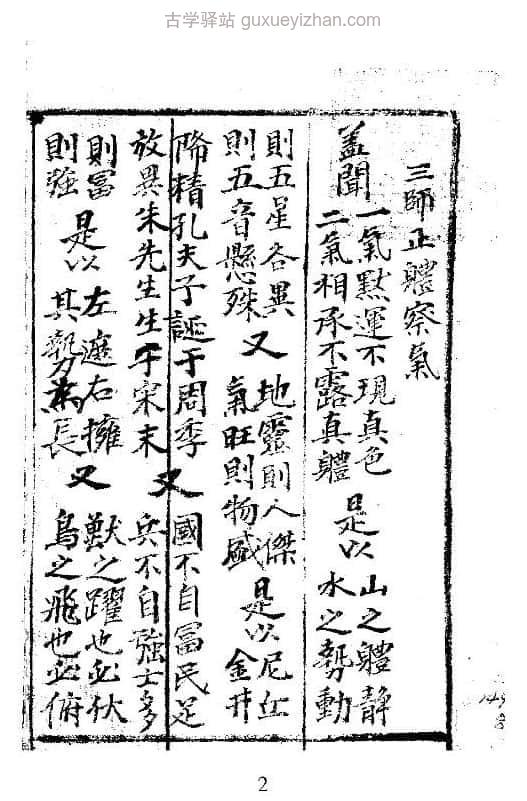 古学驿站 guxueyizhan.com
三師正軆察氣
盖聞
一氣默運不現真色
二氣相承不露真軆
是以
山之軆靜
水之勢動
則五星各異
則五音懸殊
又
地靈則人傑
氣旺則物盛
是以
尼丘
金井
降精孔夫子誕于周季
放異朱先生生于宋末
又
國不自冨民足
兵不自強士多
則冨
則強
是以
左遮右擁
其勢為長
又
獸之躍也必伏
鳥之飛也必俯
2